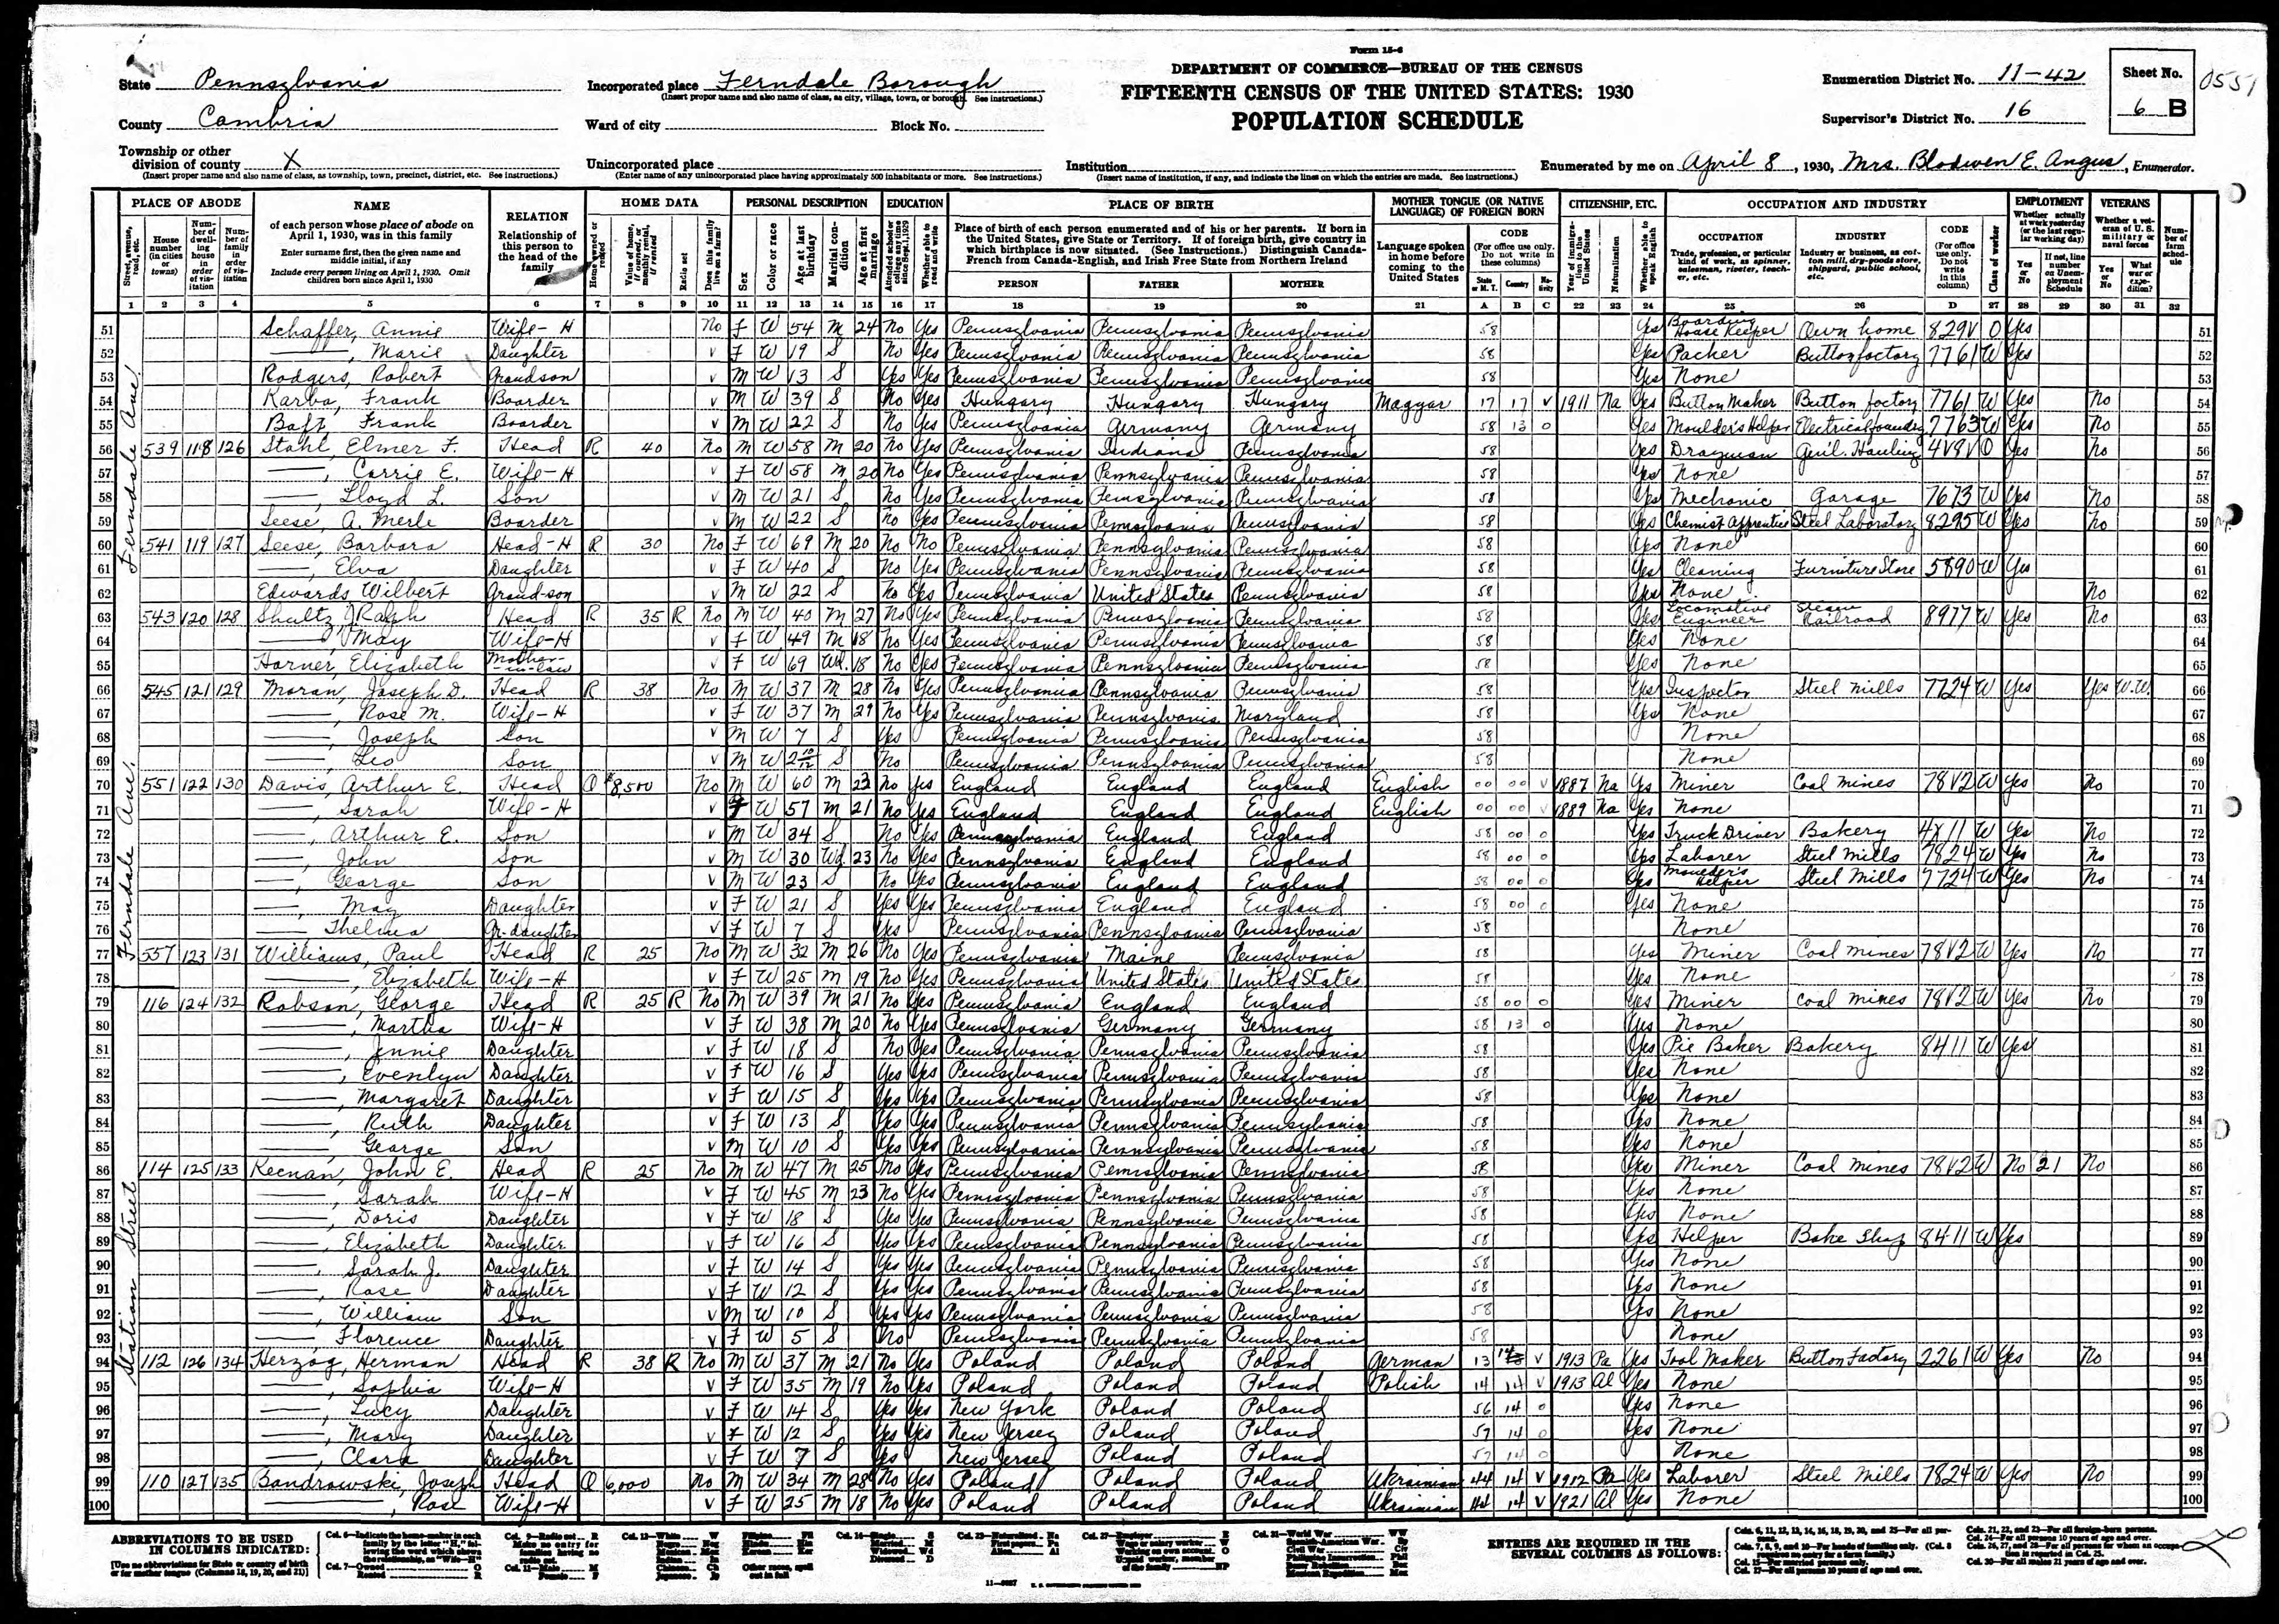 Form 15-6
DEPARTMENT OF COMMERCE—BUREAU OF THE CENSUS
FIFTEENTH CENSUS OF THE UNITED STATES: 1930
POPULATION SCHEDULE
State Pennsylvania
County Cambria
Township or other division of county X
(Insert proper name and also name of class, as township, town, precinct, district, etc. See instructions.)
Incorporated place Ferndale Borough
(Insert proper name and also name of class, as city, village, town, or borough. See instructions.)
Ward of city Block No.
Unincorporated place
(Enter name of any unincorporated place having approximately 500 inhabitants or more. See instructions.)
Institution
(Insert name of institution, if any, and indicate the lines on which the entries are made. See instructions.)
Enumeration District No. 11-42
Supervisor's District No. 16
Sheet No. 6 B
0551
Enumerated by me on April 8, 1930, Mrs. Blodwen E. Angus, Enumerator.
PLACE OF ABODE NAME RELATION HOME DATA PERSONAL DESCRIPTION EDUCATION PLACE OF BIRTH MOTHER TONGUE (OR NATIVE LANGUAGE) OF FOREIGN BORN CITIZENSHIP, ETC. OCCUPATION AND INDUSTRY EMPLOYMENT VETERANS
of each person whose place of abode on April 1, 1930, was in this family
Enter surname first, then the given name and middle initial, if any
Include every person living on April 1, 1930. Omit children born since April 1, 1930
Relationship of this person to the head of the family
Place of birth of each person enumerated and of his or her parents. If born in the United States, give State or Territory. If of foreign birth, give country in which birthplace is now situated. (See Instructions.) Distinguish Canada-French from Canada-English, and Irish Free State from Northern Ireland
PERSON FATHER MOTHER
Language spoken in home before coming to the United States
1 2 3 4 5 6 7 8 9 10 11 12 13 14 15 16 17 18 19 20 21 A B C 22 23 24 25 26 D 27 28 29 30 31 32
Ferndale Ave.
51 Schaffer, Annie Wife-H No F W 54 M 24 No Yes Pennsylvania Pennsylvania Pennsylvania 58 Yes Boarding House Keeper Own home 829V O Yes 51
52 ——, Marie Daughter V F W 19 S No Yes Pennsylvania Pennsylvania Pennsylvania 58 Yes Packer Button factory 7761 W Yes 52
53 Rodgers, Robert Grandson V M W 13 S Yes Yes Pennsylvania Pennsylvania Pennsylvania 58 Yes None 53
54 Karba, Frank Boarder V M W 39 S No Yes Hungary Hungary Hungary Magyar 17 17 V 1911 Na Yes Button Maker Button factory 7761 W Yes No 54
55 Frank Boarder V M W 22 S No Yes Pennsylvania Germany Germany 58 13 0 Yes Moulder's Helper Electrical foundry 7763 W Yes No 55
56 539 118 126 Stahl, Elmer F. Head R 40 No M W 58 M 20 No Yes Pennsylvania Indiana Pennsylvania 58 Yes Drayman Gen'l. Hauling 4V8V O Yes No 56
57 ——, Carrie E. Wife-H V F W 58 M 20 No Yes Pennsylvania Pennsylvania Pennsylvania 58 Yes None 57
58 ——, Lloyd L. Son V M W 21 S No Yes Pennsylvania Pennsylvania Pennsylvania 58 Yes Mechanic Garage 7673 W Yes No 58
59 Seese, A. Merle Boarder V M W 22 S No Yes Pennsylvania Pennsylvania Pennsylvania 58 Yes Chemist Apprentice Steel Laboratory 8295 W Yes No 59
60 541 119 127 Seese, Barbara Head-H R 30 No F W 69 M 20 No No Pennsylvania Pennsylvania Pennsylvania 58 Yes None 60
61 ——, Elva Daughter V F W 40 S No Yes Pennsylvania Pennsylvania Pennsylvania 58 Yes Cleaning Furniture Store 5890 W Yes 61
62 Edwards Wilbert Grand-son V M W 22 S No Yes Pennsylvania United States Pennsylvania 58 Yes None No 62
63 543 120 128 Shultz J. Ralph Head R 35 R No M W 40 M 27 No Yes Pennsylvania Pennsylvania Pennsylvania 58 Yes Locomotive Engineer Steam Railroad 8977 W Yes No 63
64 ——, May Wife-H V F W 49 M 18 No Yes Pennsylvania Pennsylvania Pennsylvania 58 Yes None 64
65 Horner, Elizabeth Mother-in-law V F W 69 Wd. 18 No Yes Pennsylvania Pennsylvania Pennsylvania 58 Yes None 65
66 545 121 129 Moran, Joseph D. Head R 38 No M W 37 M 28 No Yes Pennsylvania Pennsylvania Pennsylvania 58 Yes Inspector Steel Mills 7724 W Yes Yes W.W. 66
67 ——, Rose M. Wife-H V F W 37 M 29 No Yes Pennsylvania Pennsylvania Maryland 58 Yes None 67
68 ——, Joseph Son V M W 7 S Yes Pennsylvania Pennsylvania Pennsylvania 58 None 68
69 ——, Leo Son V M W 2 10/12 S No Pennsylvania Pennsylvania Pennsylvania 58 None 69
70 551 122 130 Davis, Arthur E. Head O $8,500 No M W 60 M 23 No Yes England England England English 00 00 V 1887 Na Yes Miner Coal mines 78V2 W Yes No 70
71 ——, Sarah Wife-H V F W 57 M 21 No Yes England England England English 00 00 V 1889 Na Yes None 71
72 ——, Arthur E. Son V M W 34 S No Yes Pennsylvania England England 58 00 0 Yes Truck Driver Bakery 4X11 W Yes No 72
73 ——, John Son V M W 30 Wd. 23 No Yes Pennsylvania England England 58 00 0 Yes Laborer Steel Mills 7824 W Yes No 73
74 ——, George Son V M W 23 S No Yes Pennsylvania England England 58 00 0 Yes Moulder's Helper Steel Mills 7724 W Yes No 74
75 ——, May Daughter V F W 21 S Yes Yes Pennsylvania England England 58 00 0 Yes None 75
76 —— Thelma Gr-daughter V F W 7 S Yes Pennsylvania Pennsylvania Pennsylvania 58 None 76
77 557 123 131 Williams, Paul Head R 25 No M W 32 M 26 No Yes Pennsylvania Maine Pennsylvania 58 Yes Miner Coal mines 78V2 W Yes No 77
78 ——, Elizabeth Wife-H V F W 25 M 19 No Yes Pennsylvania United States United States 58 Yes None 78
Station Street
79 116 124 132 Robson, George Head R 25 R No M W 39 M 21 No Yes Pennsylvania England England 58 00 0 Yes Miner Coal mines 78V2 W Yes No 79
80 ——, Martha Wife-H V F W 38 M 20 No Yes Pennsylvania Germany Germany 58 13 0 Yes None 80
81 ——, Jennie Daughter V F W 18 S No Yes Pennsylvania Pennsylvania Pennsylvania 58 Yes Pie Baker Bakery 8411 W Yes 81
82 ——, Evenlyn Daughter V F W 16 S Yes Yes Pennsylvania Pennsylvania Pennsylvania 58 Yes None 82
83 ——, Margaret Daughter V F W 15 S Yes Yes Pennsylvania Pennsylvania Pennsylvania 58 Yes None 83
84 ——, Ruth Daughter V F W 13 S Yes Yes Pennsylvania Pennsylvania Pennsylvania 58 Yes None 84
85 ——, George Son V M W 10 S Yes Yes Pennsylvania Pennsylvania Pennsylvania 58 Yes None 85
86 114 125 133 Keenan, John E. Head R 25 No M W 47 M 25 No Yes Pennsylvania Pennsylvania Pennsylvania 58 Yes Miner Coal mines 78V2 W No 21 No 86
87 ——, Sarah Wife-H V F W 45 M 23 No Yes Pennsylvania Pennsylvania Pennsylvania 58 Yes None 87
88 ——, Doris Daughter V F W 18 S Yes Yes Pennsylvania Pennsylvania Pennsylvania 58 Yes None 88
89 ——, Elizabeth Daughter V F W 16 S Yes Yes Pennsylvania Pennsylvania Pennsylvania 58 Yes Helper Bake Shop 8411 W Yes 89
90 ——, Sarah J. Daughter V F W 14 S Yes Yes Pennsylvania Pennsylvania Pennsylvania 58 Yes None 90
91 ——, Rose Daughter V F W 12 S Yes Yes Pennsylvania Pennsylvania Pennsylvania 58 Yes None 91
92 ——, William Son V M W 10 S Yes Yes Pennsylvania Pennsylvania Pennsylvania 58 Yes None 92
93 ——, Florence Daughter V F W 5 S No Pennsylvania Pennsylvania Pennsylvania 58 None 93
94 112 126 134 Herzog, Herman Head R 38 R No M W 37 M 21 No Yes Poland Poland Poland German 13 14 V 1913 Pa Yes Tool Maker Button Factory 2261 W Yes No 94
95 ——, Sophia Wife-H V F W 35 M 19 No Yes Poland Poland Poland Polish 14 14 V 1913 Al Yes None 95
96 ——, Lucy Daughter V F W 14 S Yes Yes New York Poland Poland 56 14 0 Yes None 96
97 ——, Mary Daughter V F W 12 S Yes Yes New Jersey Poland Poland 57 14 0 Yes None 97
98 ——, Clara Daughter V F W 7 S Yes New Jersey Poland Poland 57 14 0 None 98
99 110 127 135 Bandrowski, Joseph Head O 6,000 No M W 34 M 28 No Yes Poland Poland Poland Ukrainian 44 14 V 1912 Pa Yes Laborer Steel Mills 7824 W Yes No 99
100 ——, Rose Wife-H V F W 25 M 18 No Yes Poland Poland Poland Ukrainian 44 14 V 1921 Al Yes None 100
ABBREVIATIONS TO BE USED IN COLUMNS INDICATED:
[Use no abbreviations for State or country of birth or for mother tongue (Columns 18, 19, 20, and 21)]
ENTRIES ARE REQUIRED IN THE SEVERAL COLUMNS AS FOLLOWS: